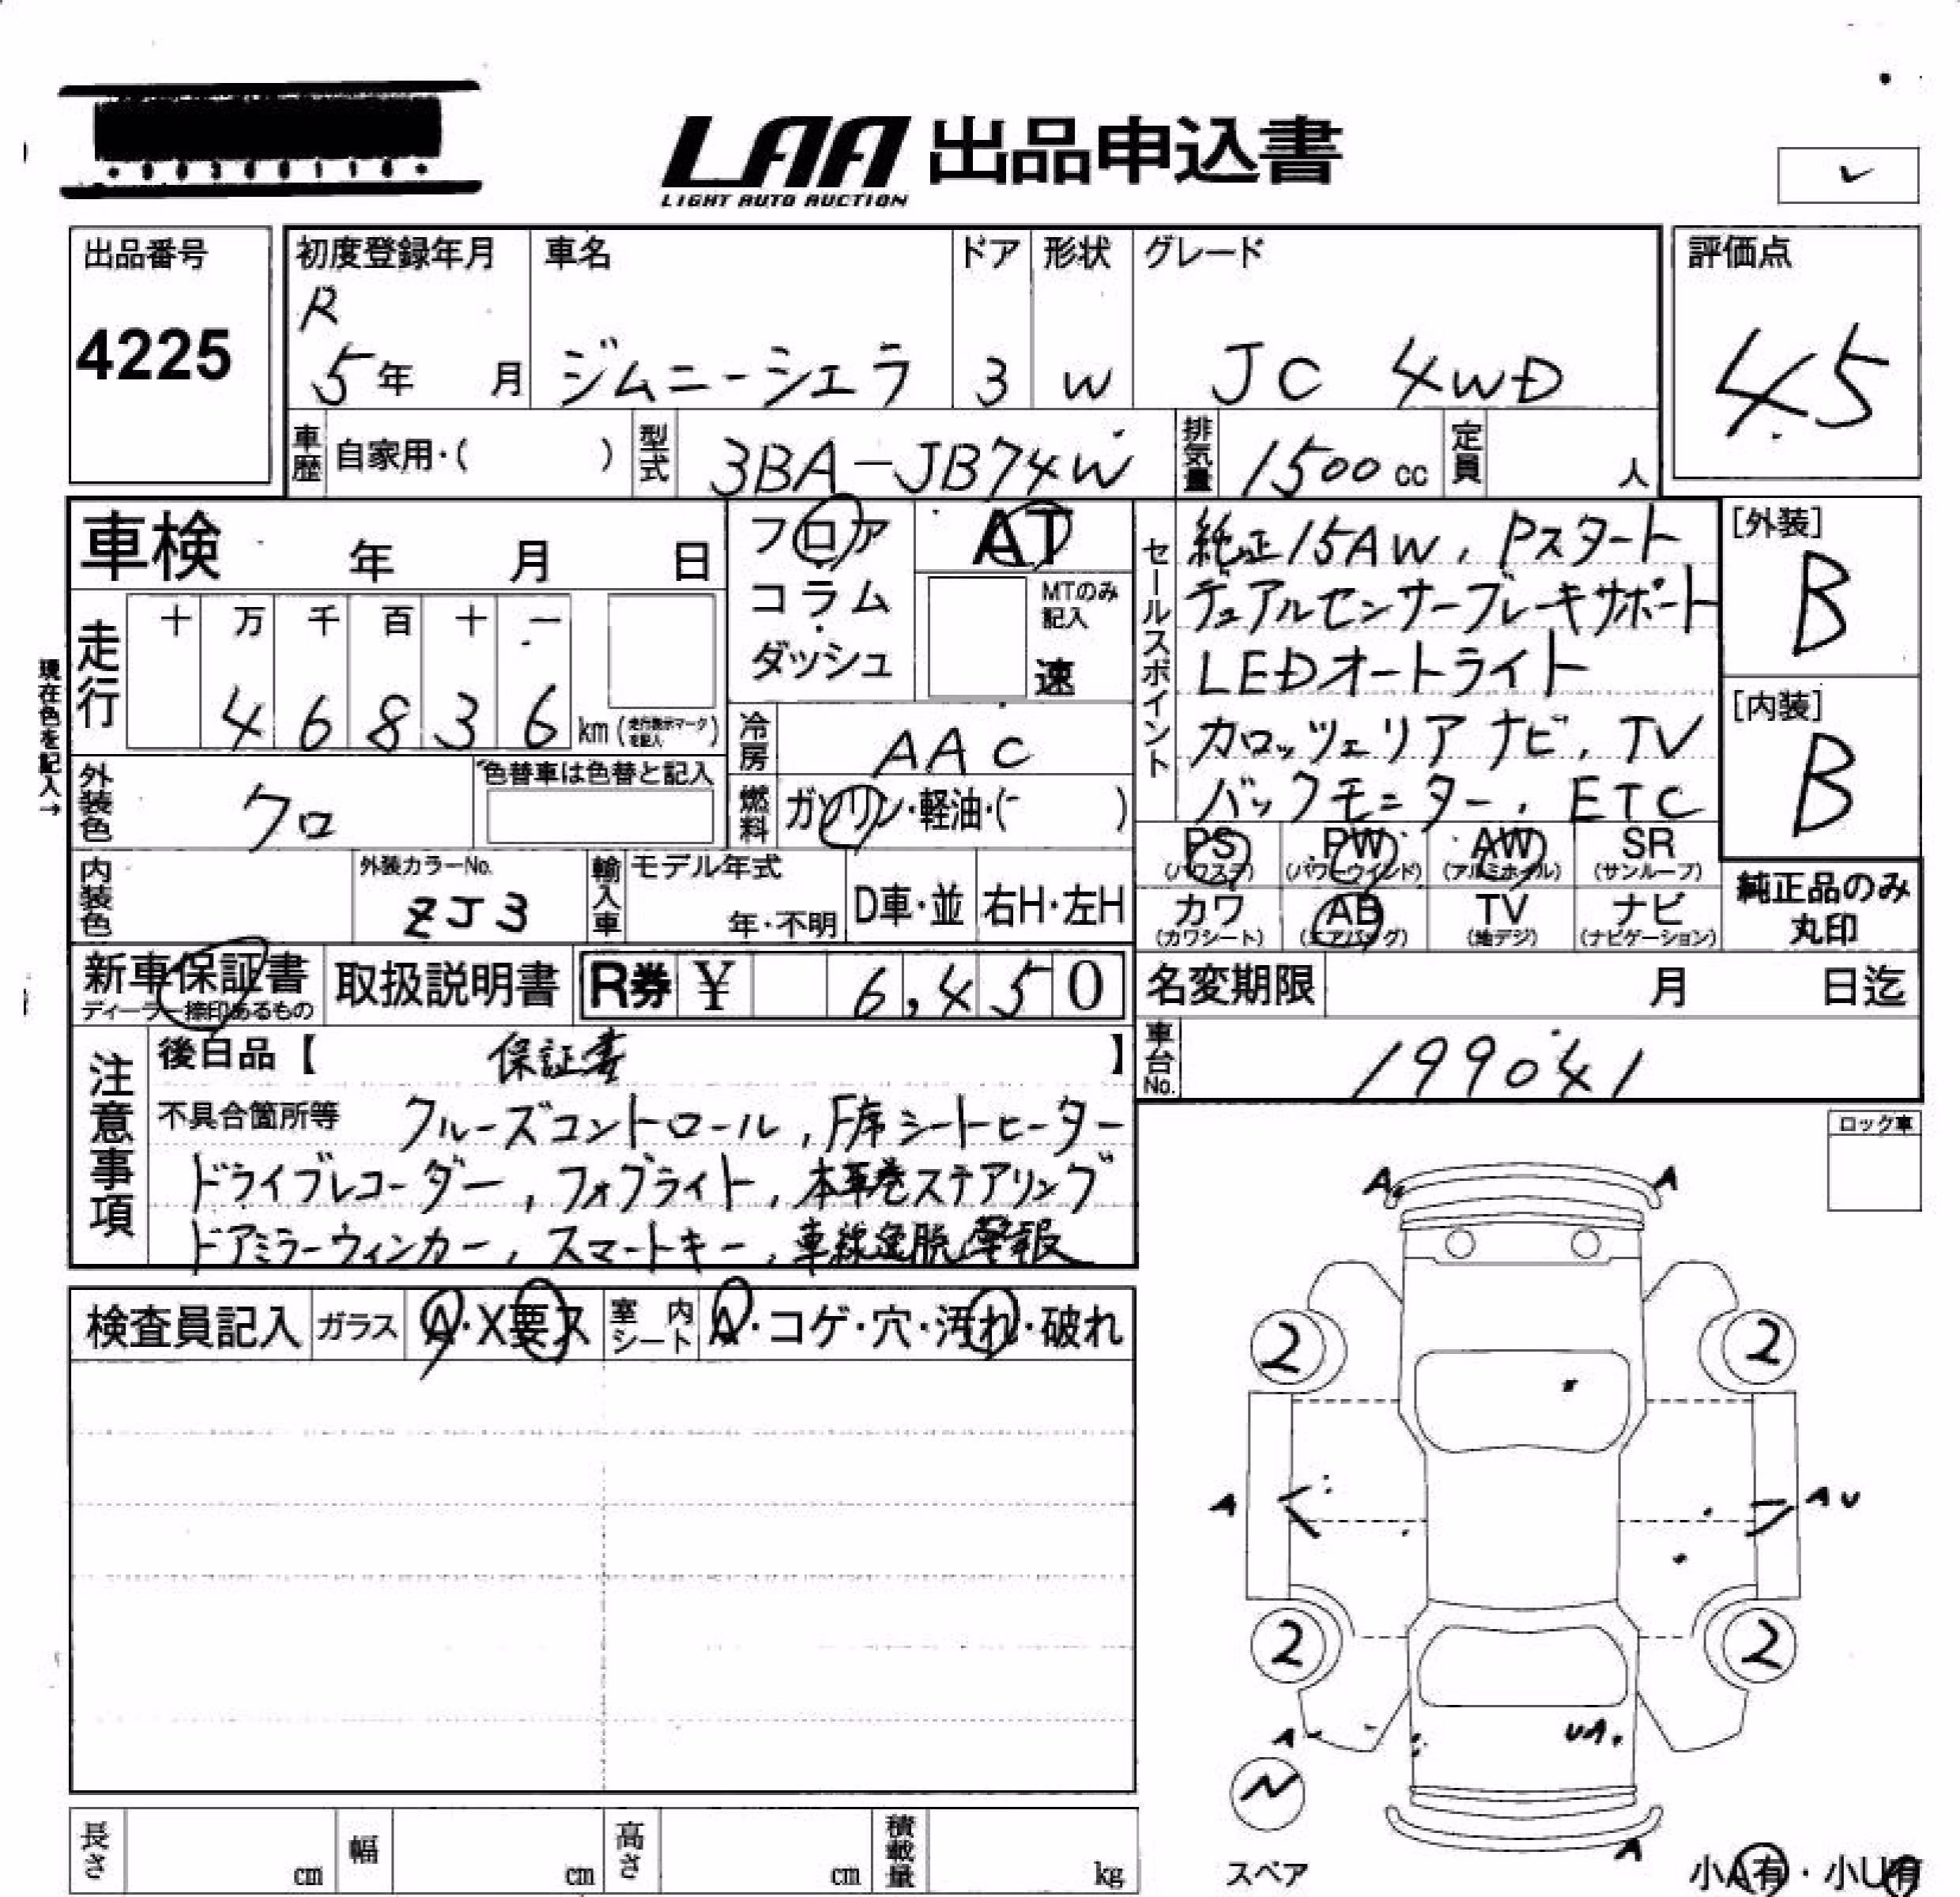 LAA 出品申込書
LIGHT AUTO AUCTION
出品番号
4225
初度登録年月
R
5年 月
車名
ジムニーシエラ
ドア
3
形状
W
グレード
JC 4WD
評価点
45
車歴 自家用・( )
型式 3BA-JB74W
排気量 1500 cc
定員 人
車検 年 月 日
フロア
コラム
ダッシュ
AT
MTのみ記入
速
セールスポイント
純正15AW, Pスタート
デュアルセンサーブレーキサポート
LEDオートライト
カロッツェリア ナビ, TV
バックモニター, ETC
[外装]
B
[内装]
B
現在色を記入→
走行
十 万 千 百 十 一
4 6 8 3 6 km (走行表示マークを記入)
冷房 AAC
外装色 クロ
色替車は色替と記入
燃料 ガソリン・軽油・( )
PS (パワステ) PW (パワーウインド) AW (アルミホイル) SR (サンルーフ)
カワ (カワシート) AB (エアバッグ) TV (地デジ) ナビ (ナビゲーション)
純正品のみ
丸印
内装色
外装カラーNo.
ZJ3
輸入車
モデル年式
年・不明
D車・並
右H・左H
新車保証書
ディーラー捺印あるもの
取扱説明書
R券 ¥ 6,450
名変期限 月 日迄
車台No. 199041
注意事項
後日品【 保証書 】
不具合箇所等 クルーズコントロール, F席シートヒーター
ドライブレコーダー, フォグライト, 本革巻ステアリング
ドアミラーウィンカー, スマートキー, 車線逸脱警報
ロック車
検査員記入 ガラス A・X要ス 室内シート A・コゲ・穴・汚れ・破れ
A A
2 2
A A U
2 2
A UA
スペア
A
小A有・小U有
長さ cm 幅 cm 高さ cm 積載量 kg